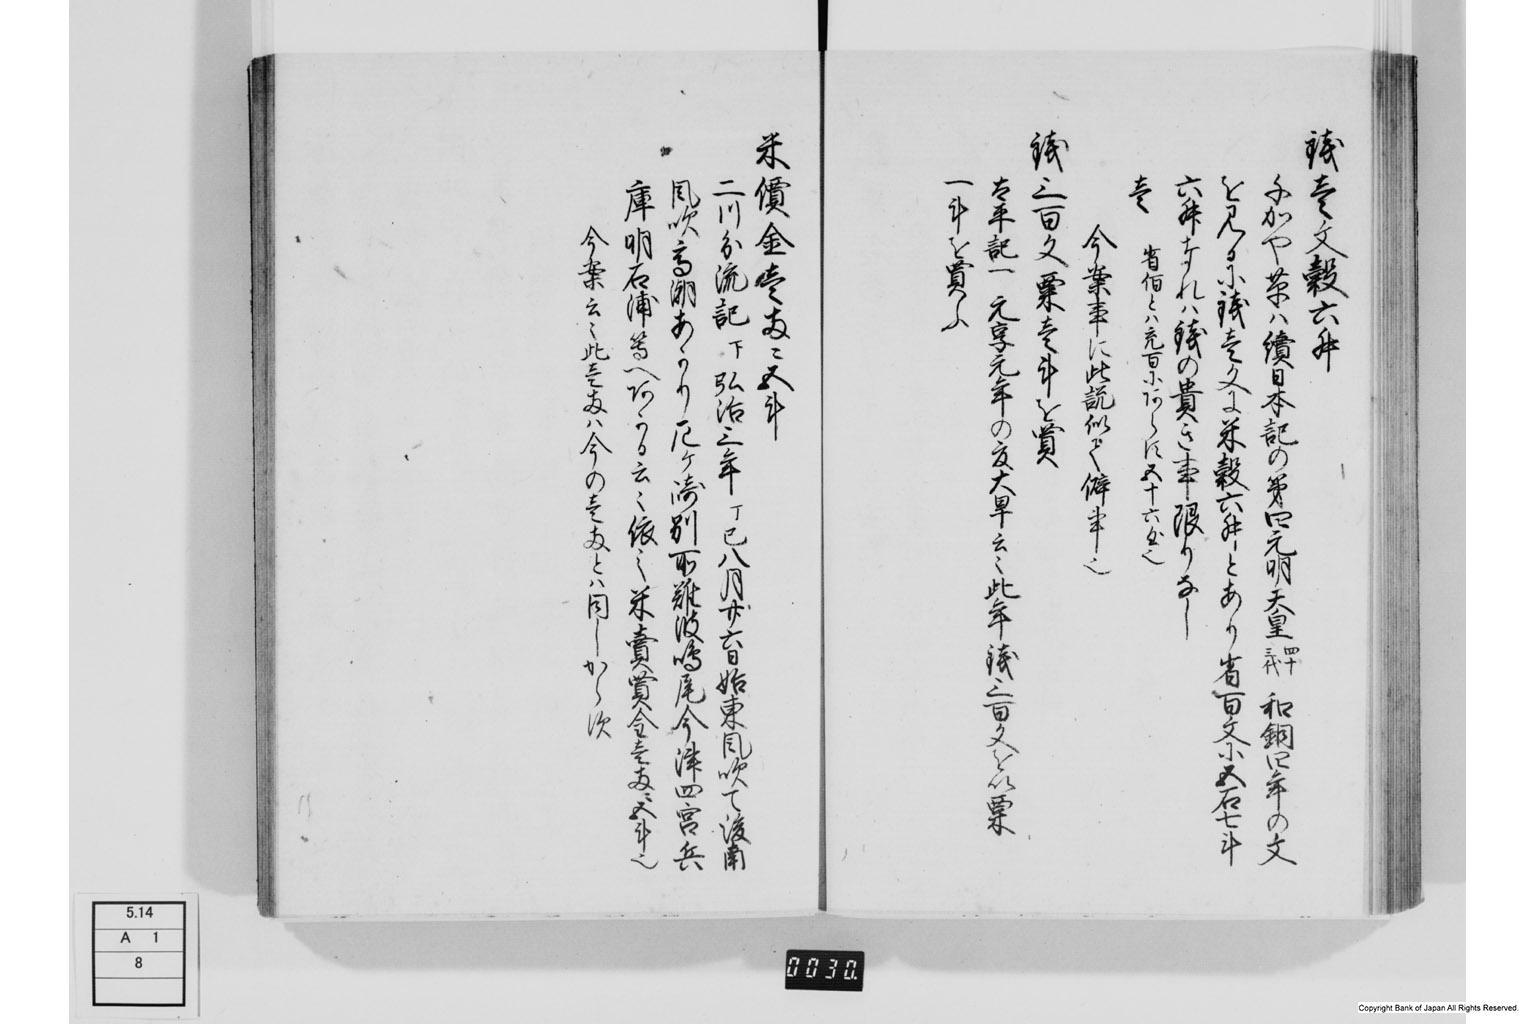 銭壱文穀六升
をかや草ハ續日本記の第四元明天皇四十三代和銅四年の文
を見るに銭壱文に米穀六升とあり省百文に五石七斗
六升なれハ銭の貴き事限りなし
壱 省佰とハ充百にあらす九十六也
今案事に此説似て僻事也
銭三百文粟壱斗を買
太平記一 元享元年の夏大旱云々此年銭三百文を以粟
一斗を買ふ
米價金壱両ニ五斗
二川分流記 下 弘治三年丁巳八月廿六日始東風吹て後南
風吹高潮あかり尼ヶ崎別所難波鳴尾今津西宮兵
庫明石浦等へあかる云々依之米賣買金壱両ニ五斗也
今案云々此壱両ハ今の壱両とハ同しからす
5.14
A 1
8
0030.
Copyright Bank of Japan All Rights Reserved.